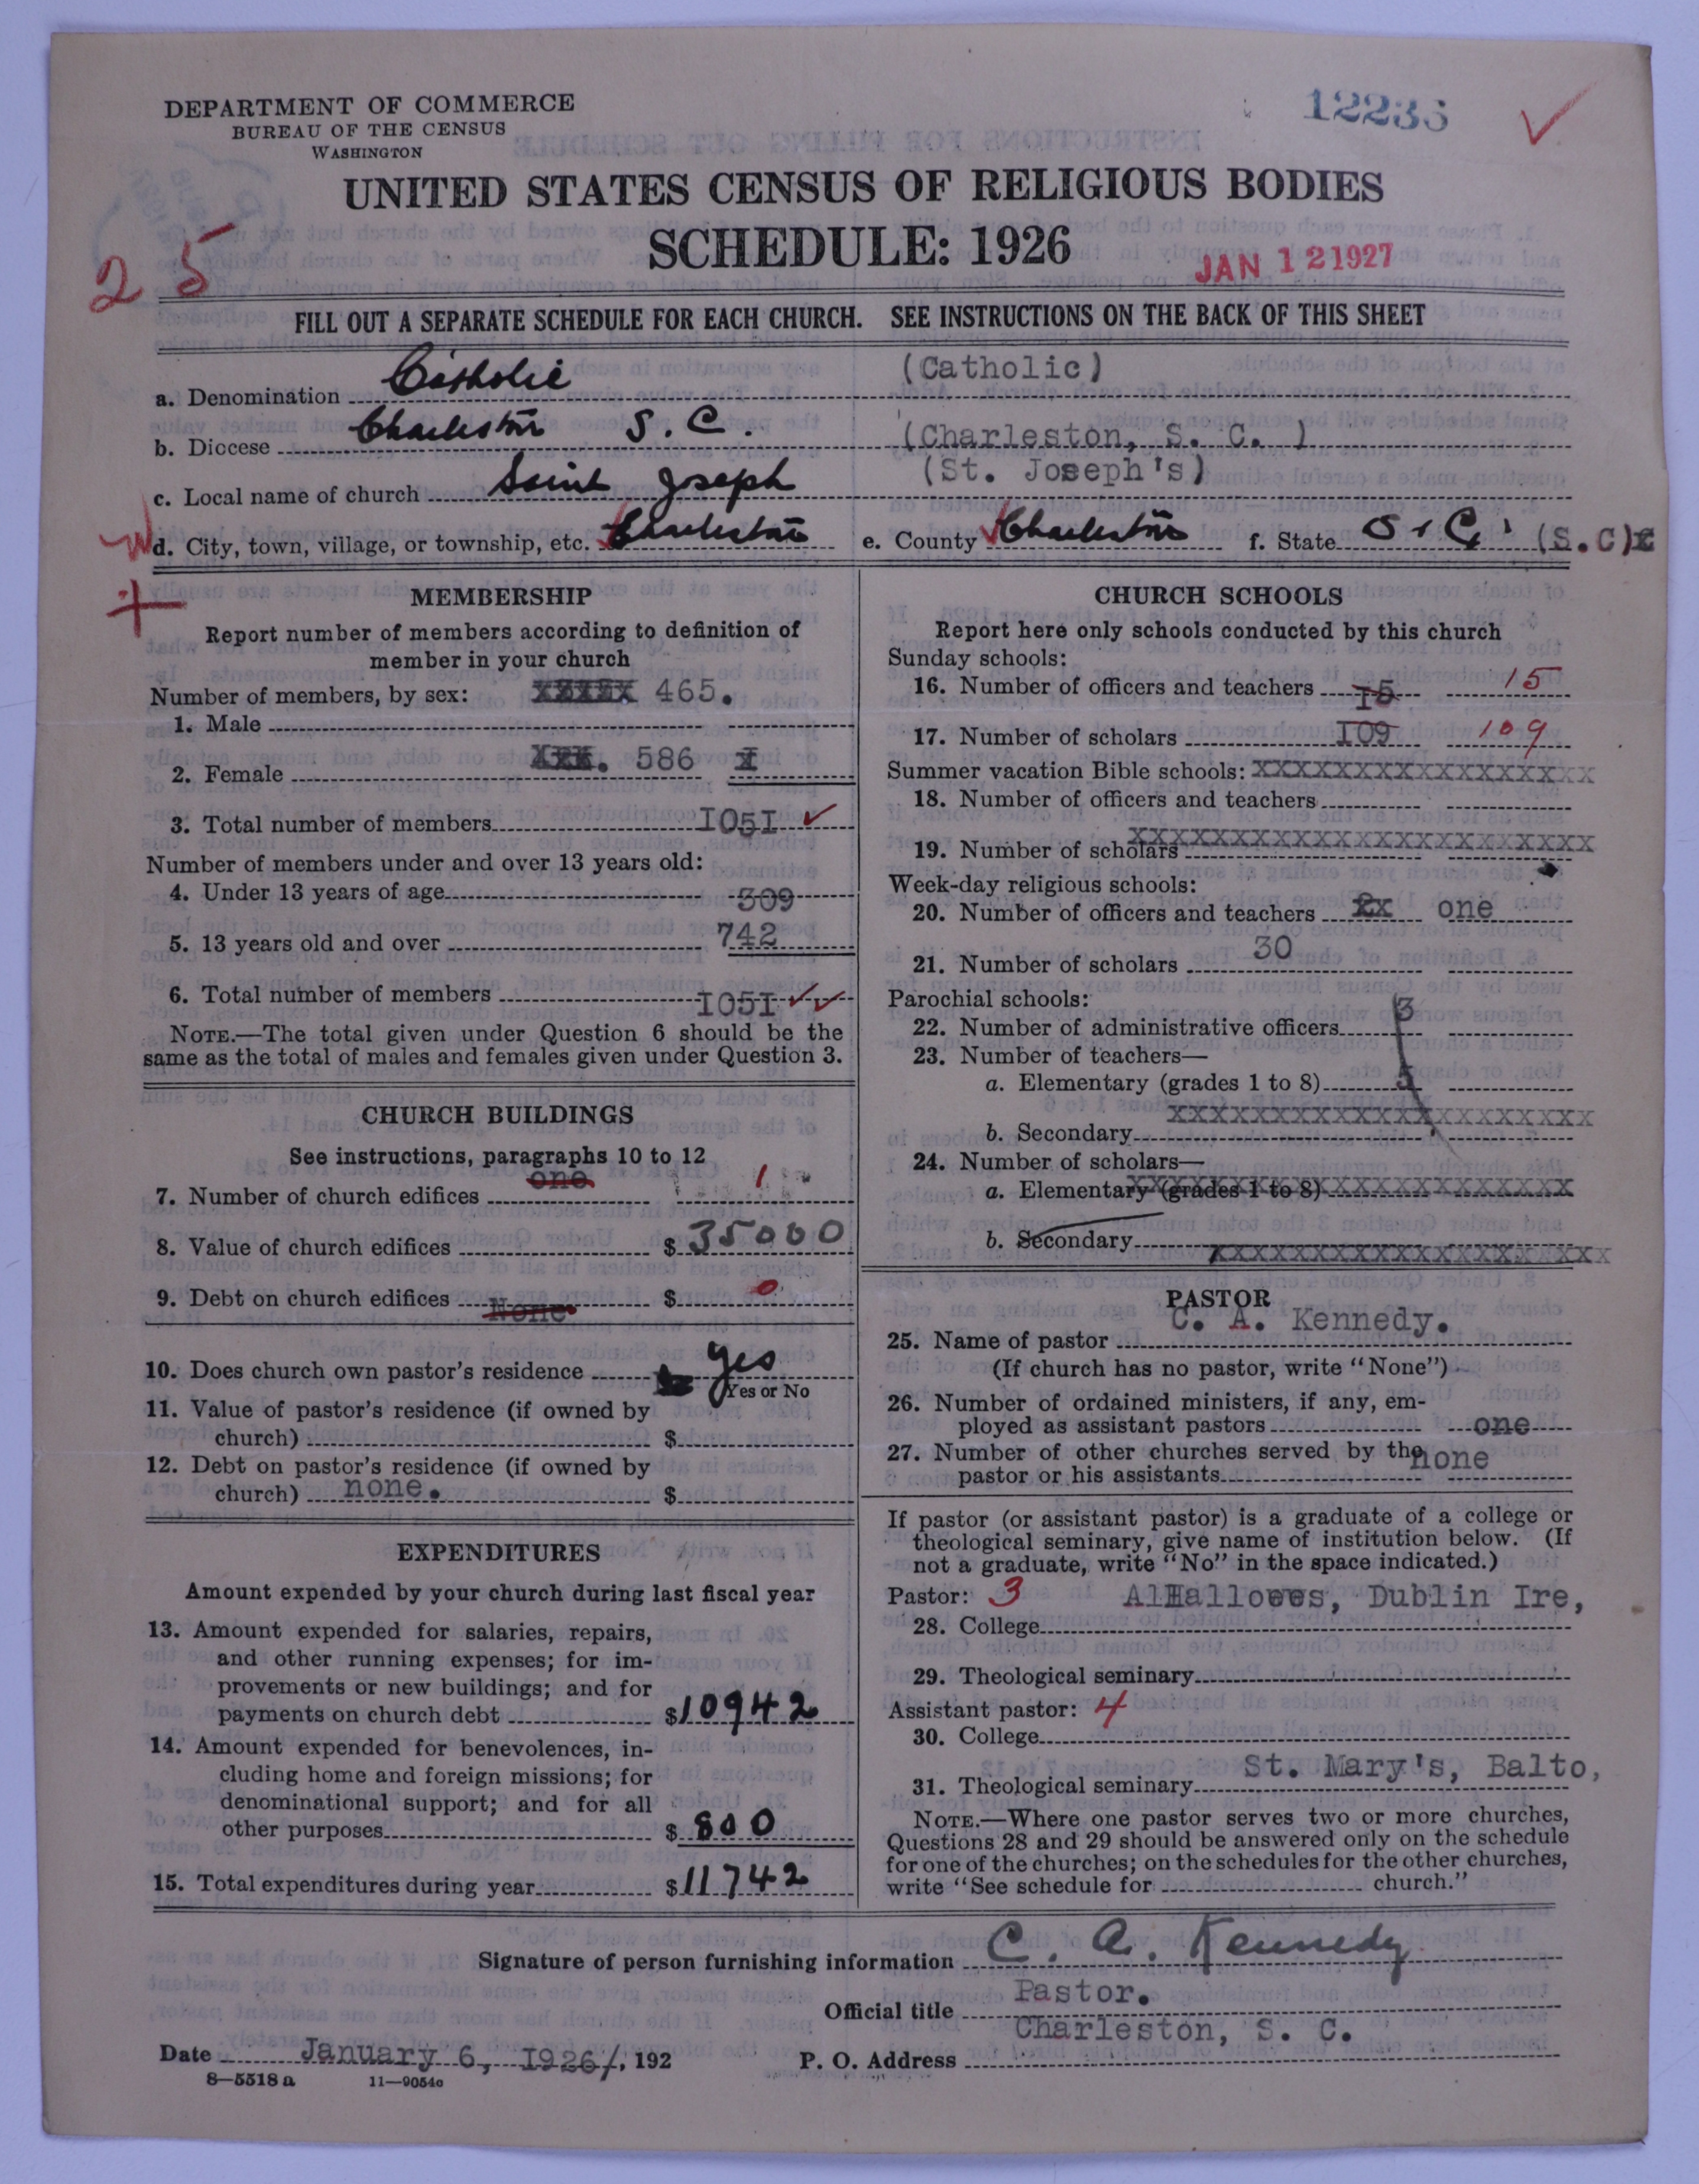 DEPARTMENT OF COMMERCE
BUREAU OF THE CENSUS
WASHINGTON
12236
UNITED STATES CENSUS OF RELIGIOUS BODIES
SCHEDULE: 1926
JAN 12 1927
25
FILL OUT A SEPARATE SCHEDULE FOR EACH CHURCH. SEE INSTRUCTIONS ON THE BACK OF THIS SHEET
a. Denomination Catholic (Catholic)
b. Diocese Charleston S. C. (Charleston, S. C. )
c. Local name of church Saint Joseph (St. Joseph's)
d. City, town, village, or township, etc. Charleston e. County Charleston f. State S. C. (S.C)
MEMBERSHIP
Report number of members according to definition of
member in your church
Number of members, by sex: 465.
1. Male
2. Female 586
3. Total number of members I05I
Number of members under and over 13 years old:
4. Under 13 years of age 309
5. 13 years old and over 742
6. Total number of members I05I
NOTE.—The total given under Question 6 should be the
same as the total of males and females given under Question 3.
CHURCH BUILDINGS
See instructions, paragraphs 10 to 12
7. Number of church edifices one 1
8. Value of church edifices $ 35000
9. Debt on church edifices None $ 0
10. Does church own pastor's residence yes
Yes or No
11. Value of pastor's residence (if owned by
church) $
12. Debt on pastor's residence (if owned by
church) none. $
EXPENDITURES
Amount expended by your church during last fiscal year
13. Amount expended for salaries, repairs,
and other running expenses; for im-
provements or new buildings; and for
payments on church debt $10942
14. Amount expended for benevolences, in-
cluding home and foreign missions; for
denominational support; and for all
other purposes $ 800
15. Total expenditures during year $11742
CHURCH SCHOOLS
Report here only schools conducted by this church
Sunday schools:
16. Number of officers and teachers I5 15
17. Number of scholars I09 109
Summer vacation Bible schools: XXXXXXXXXXXXXXXXXXXX
18. Number of officers and teachers
19. Number of scholars XXXXXXXXXXXXXXXXXXXXXXXXXXX
Week-day religious schools:
20. Number of officers and teachers one
21. Number of scholars 30
Parochial schools:
22. Number of administrative officers 3
23. Number of teachers—
a. Elementary (grades 1 to 8) 5
b. Secondary XXXXXXXXXXXXXXXXXXXXXXXXX
24. Number of scholars—
a. Elementary (grades 1 to 8) XXXXXXXXXXXXXXXXXXXXXXXXXX
b. Secondary XXXXXXXXXXXXXXXXXXXXXXX
PASTOR
25. Name of pastor C. A. Kennedy.
(If church has no pastor, write "None")
26. Number of ordained ministers, if any, em-
ployed as assistant pastors one
27. Number of other churches served by the
pastor or his assistants none
If pastor (or assistant pastor) is a graduate of a college or
theological seminary, give name of institution below. (If
not a graduate, write "No" in the space indicated.)
Pastor: 3 AlHallowes, Dublin Ire,
28. College
29. Theological seminary
Assistant pastor: 4
30. College
31. Theological seminary St. Mary's, Balto,
NOTE.—Where one pastor serves two or more churches,
Questions 28 and 29 should be answered only on the schedule
for one of the churches; on the schedules for the other churches,
write "See schedule for church."
Signature of person furnishing information C. A. Kennedy
Official title Pastor.
Date January 6, I926/, 192 P. O. Address Charleston, S. C.
8—5518 a 11—9054c